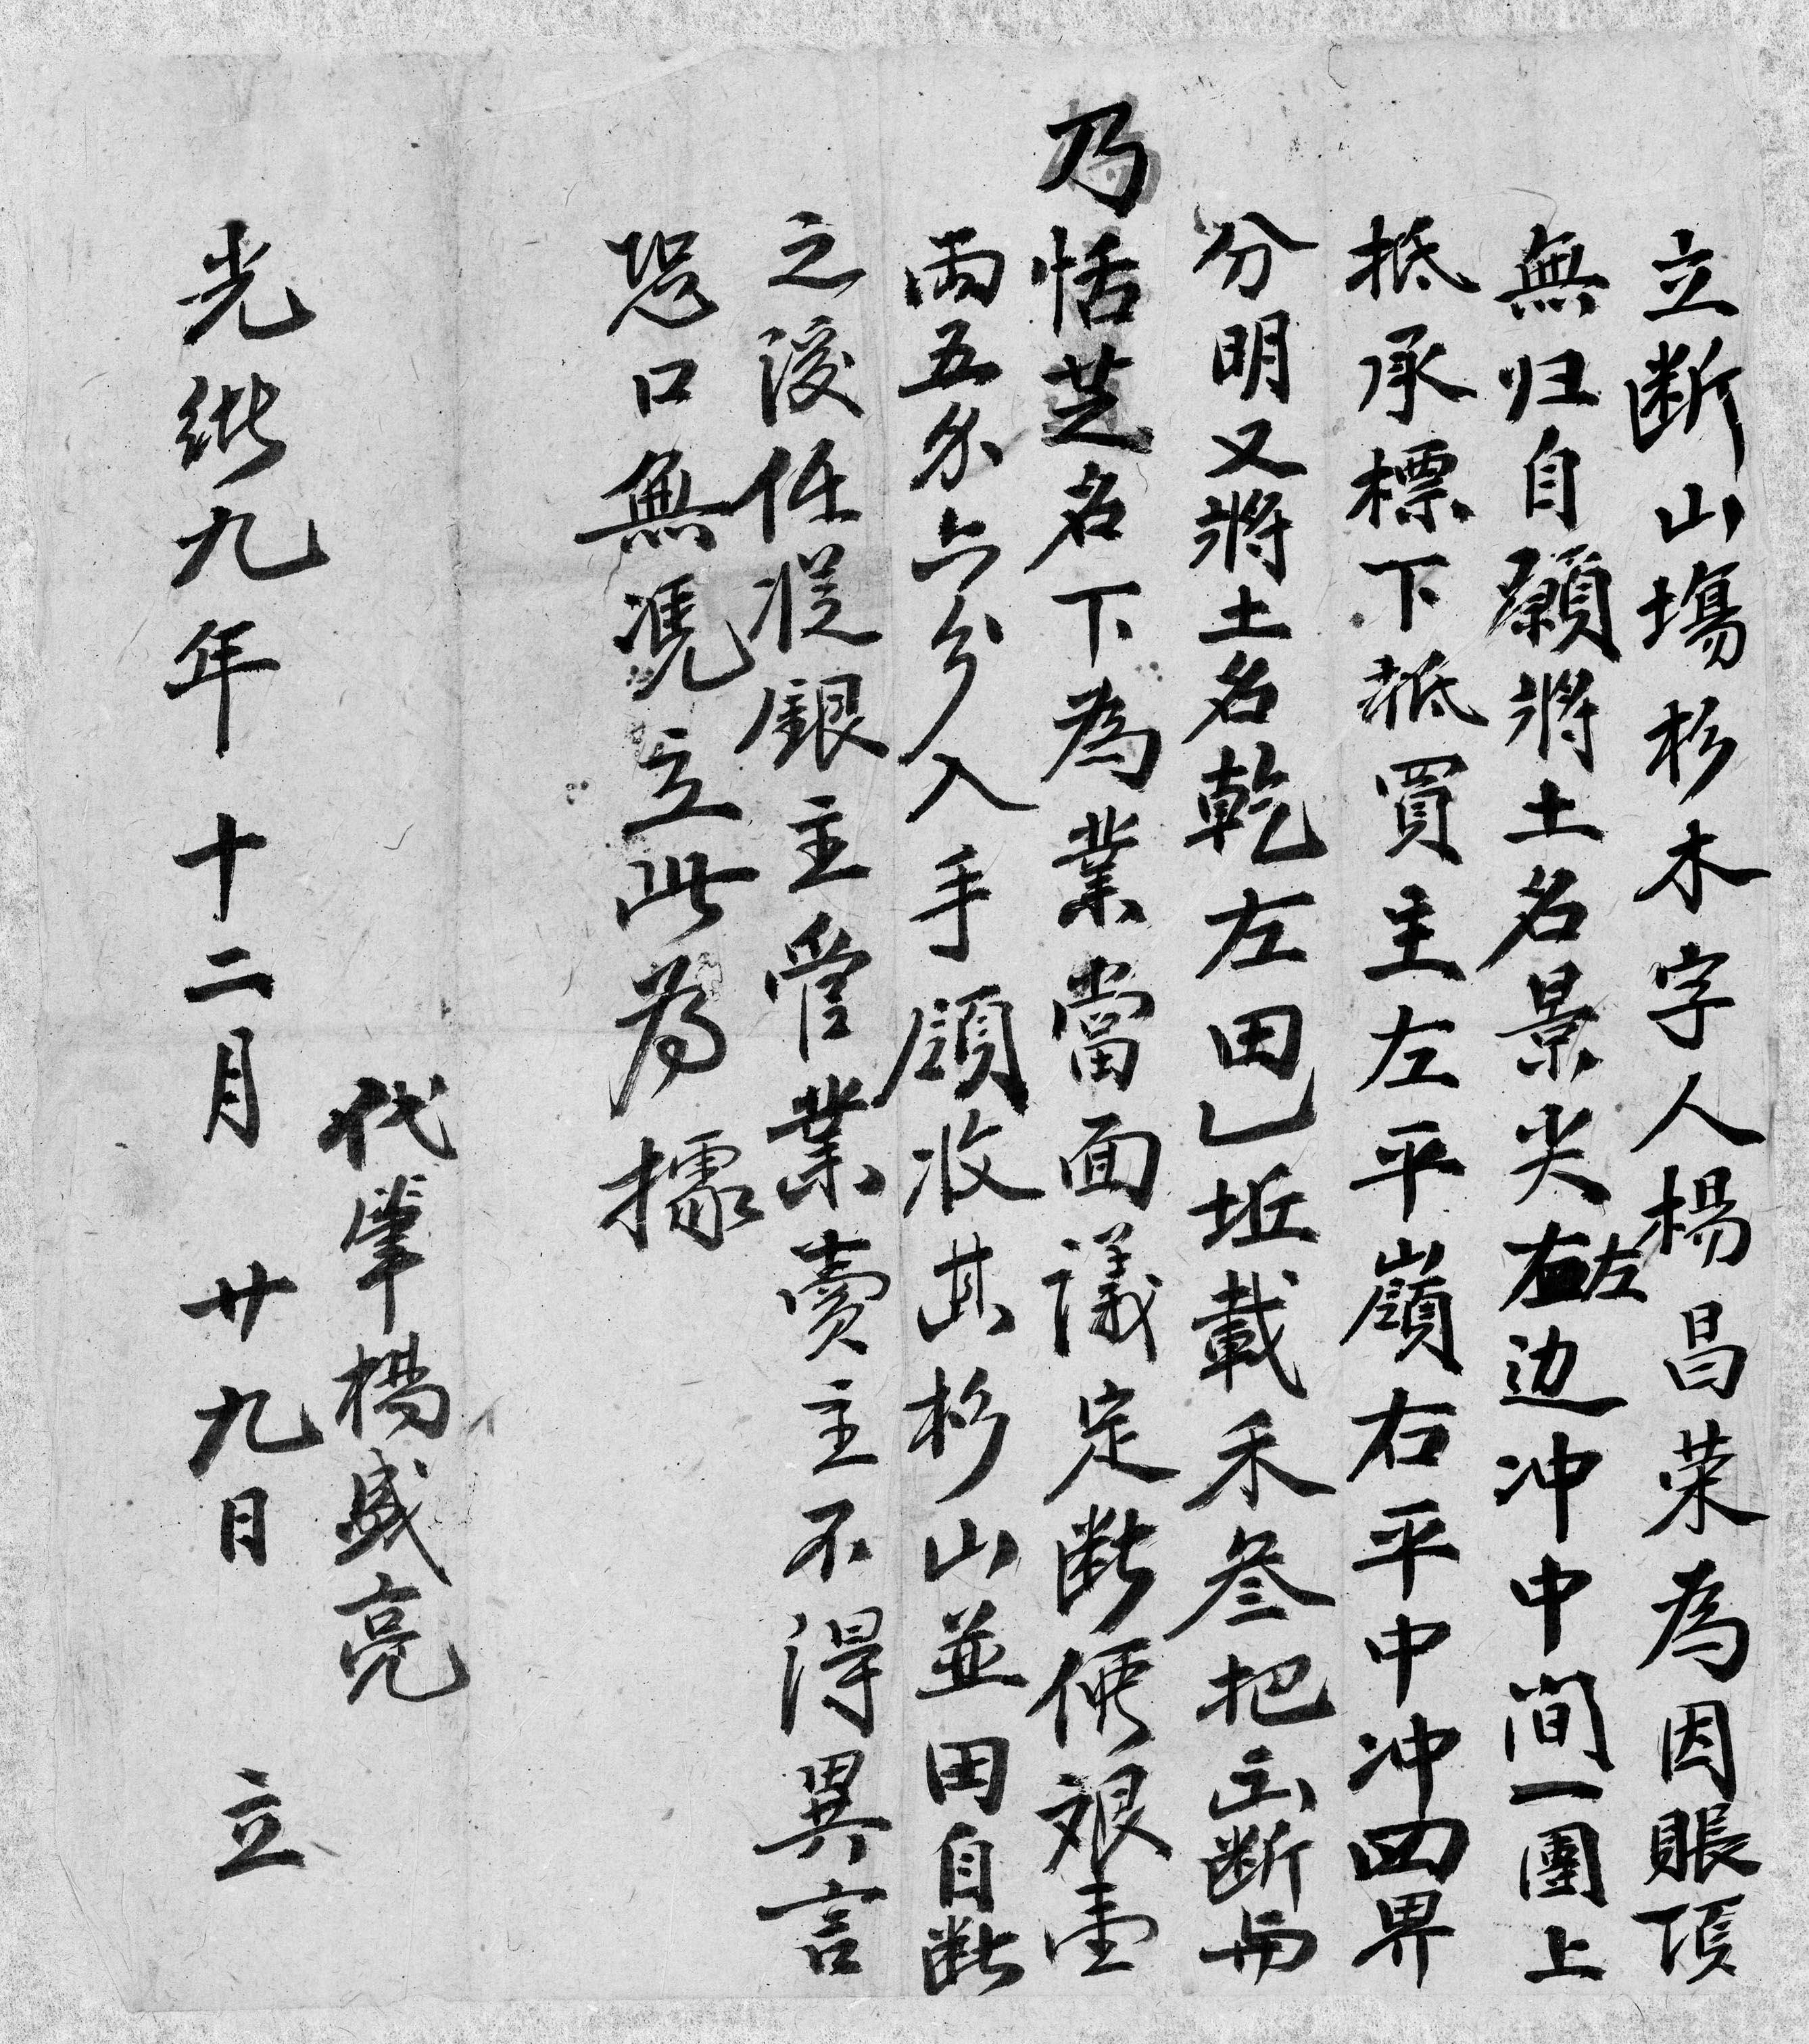 立断山塲杉木字人楊昌荣為因賬項
無归自願將土名景尖左边冲中间一團上
抵承標下抵買主左平嶺右平中冲四界
分明又將土名乾左田乚坵載禾叁把出断与
乃恬芝名下為業當面議定断價艮壹
両五分六分入手領收其杉山並田自断
之後任從銀主管業賣主不得異言
恐口無凴立此為據
代筆楊盛亮
光緒九年十二月廿九日立